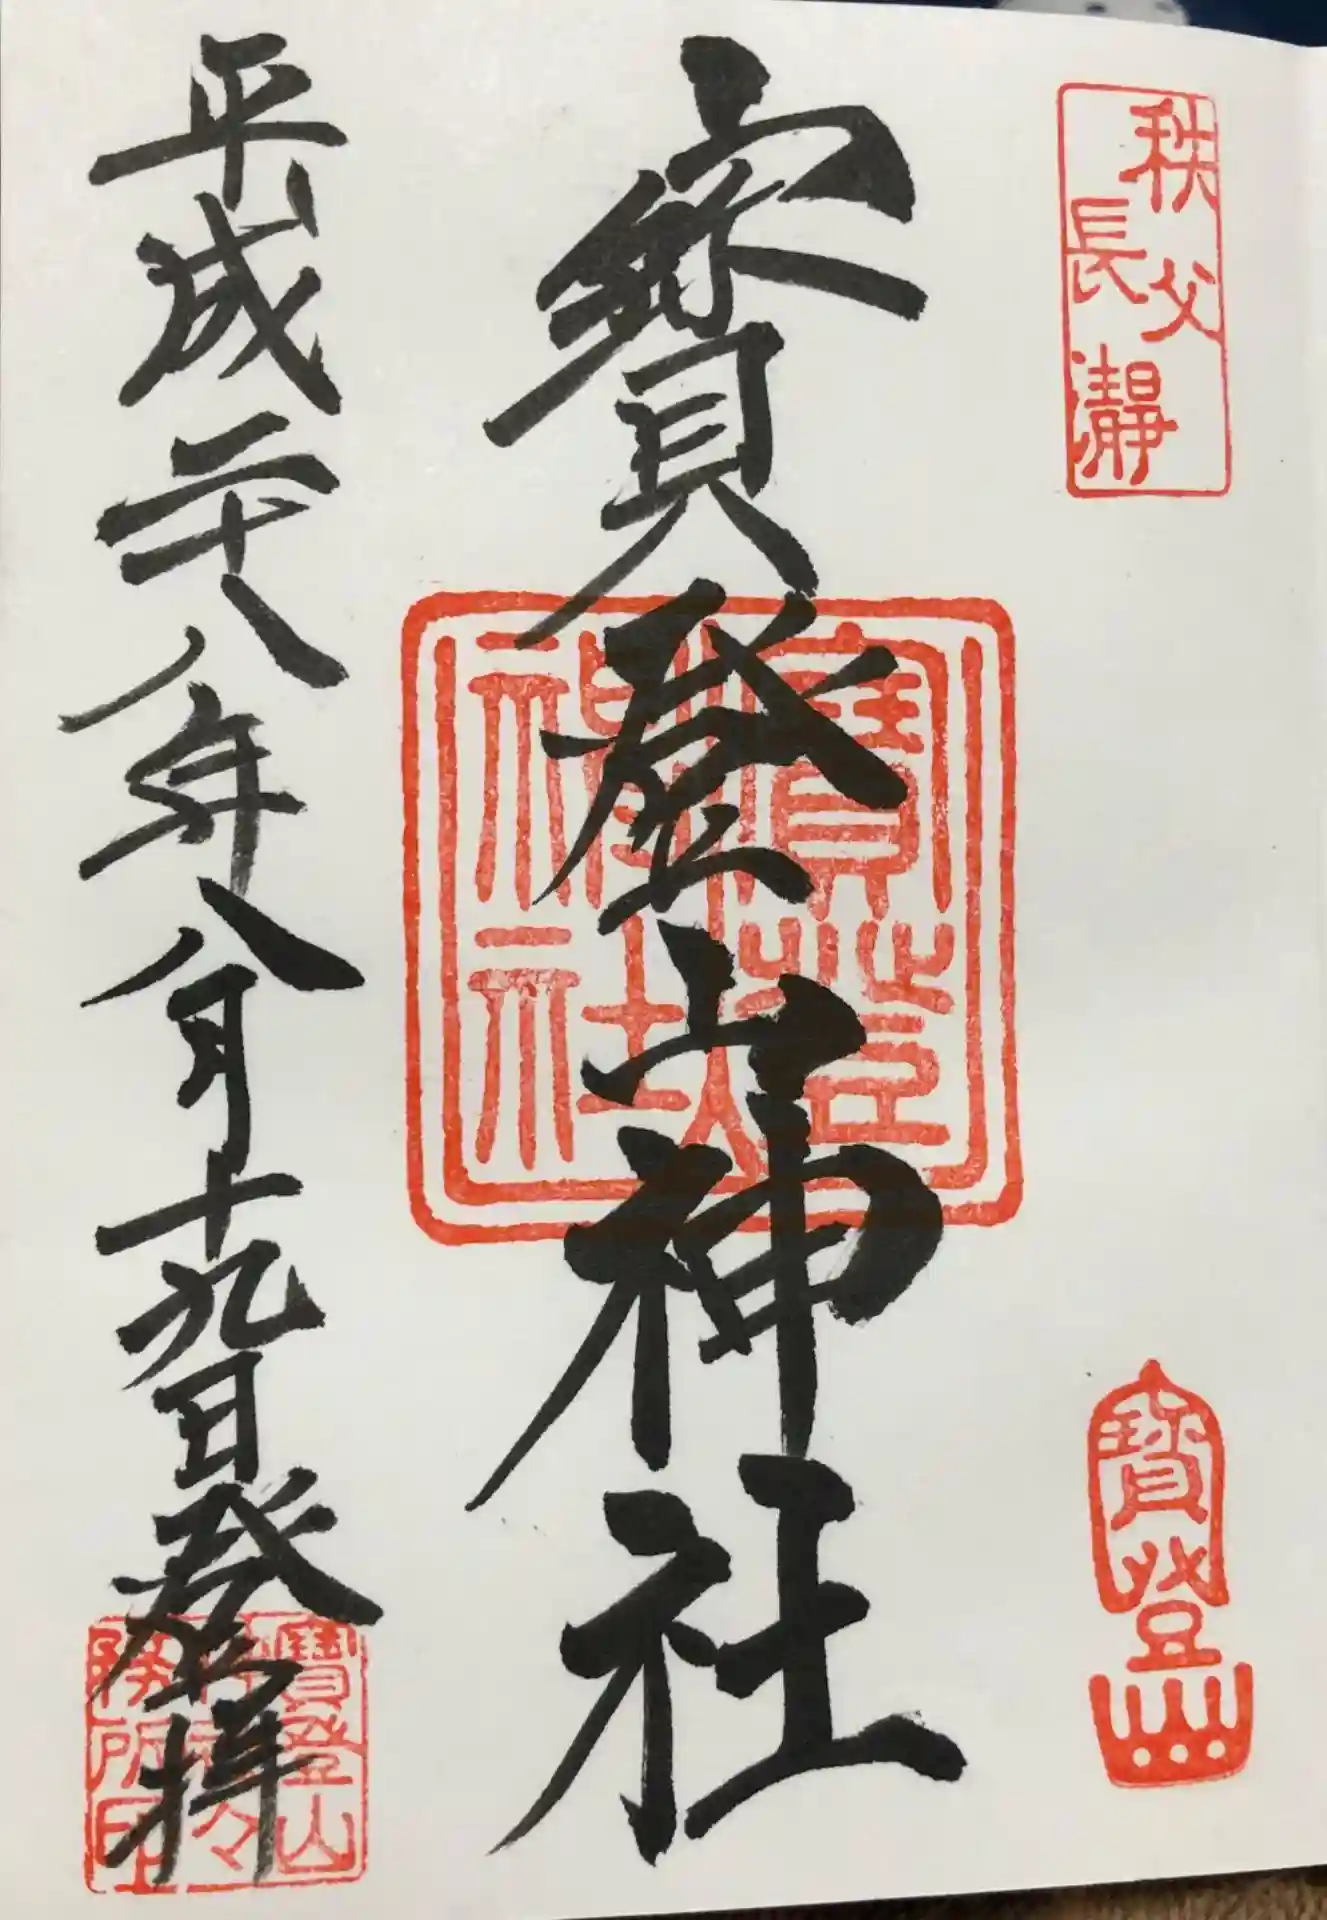 秩父
長瀞
寳登山
寳登山神社
寳登山
神社
平成二十八年八月十九日登拝
寳登山
神社々
務所印